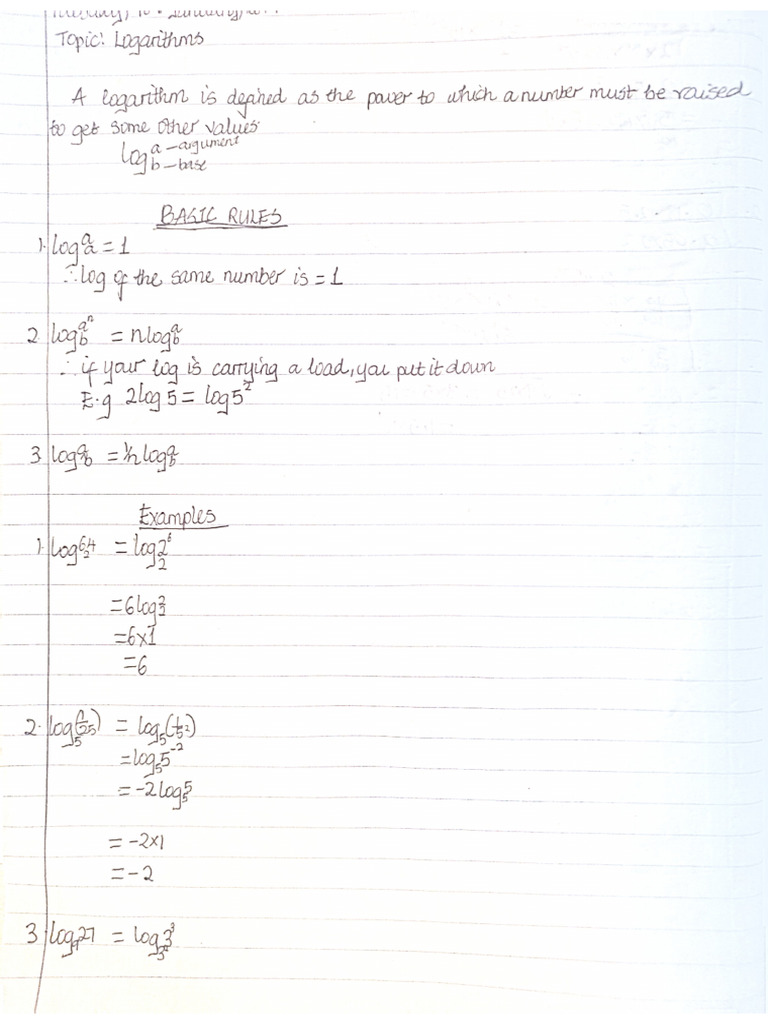 Topic: Logarithms
A logarithm is defined as the power to which a number must be raised
to get some other values
log a – argument
b – base
BASIC RULES
1. logₐᵃ = 1
∴ log of the same number is = 1
2 log_b^{aⁿ} = nlog_b^a
∴ if your log is carrying a load, you put it down
E.g 2log5 = log5²
3 = 1/n log_b^a
Examples
1. log₂64 = log₂2⁶
= 6log₂2
= 6×1
= 6
2. log₅(1/25) = log₅(1/5²)
= log₅5⁻²
= -2log₅5
= -2×1
= -2
3 log₉27 = log_{3²}3³